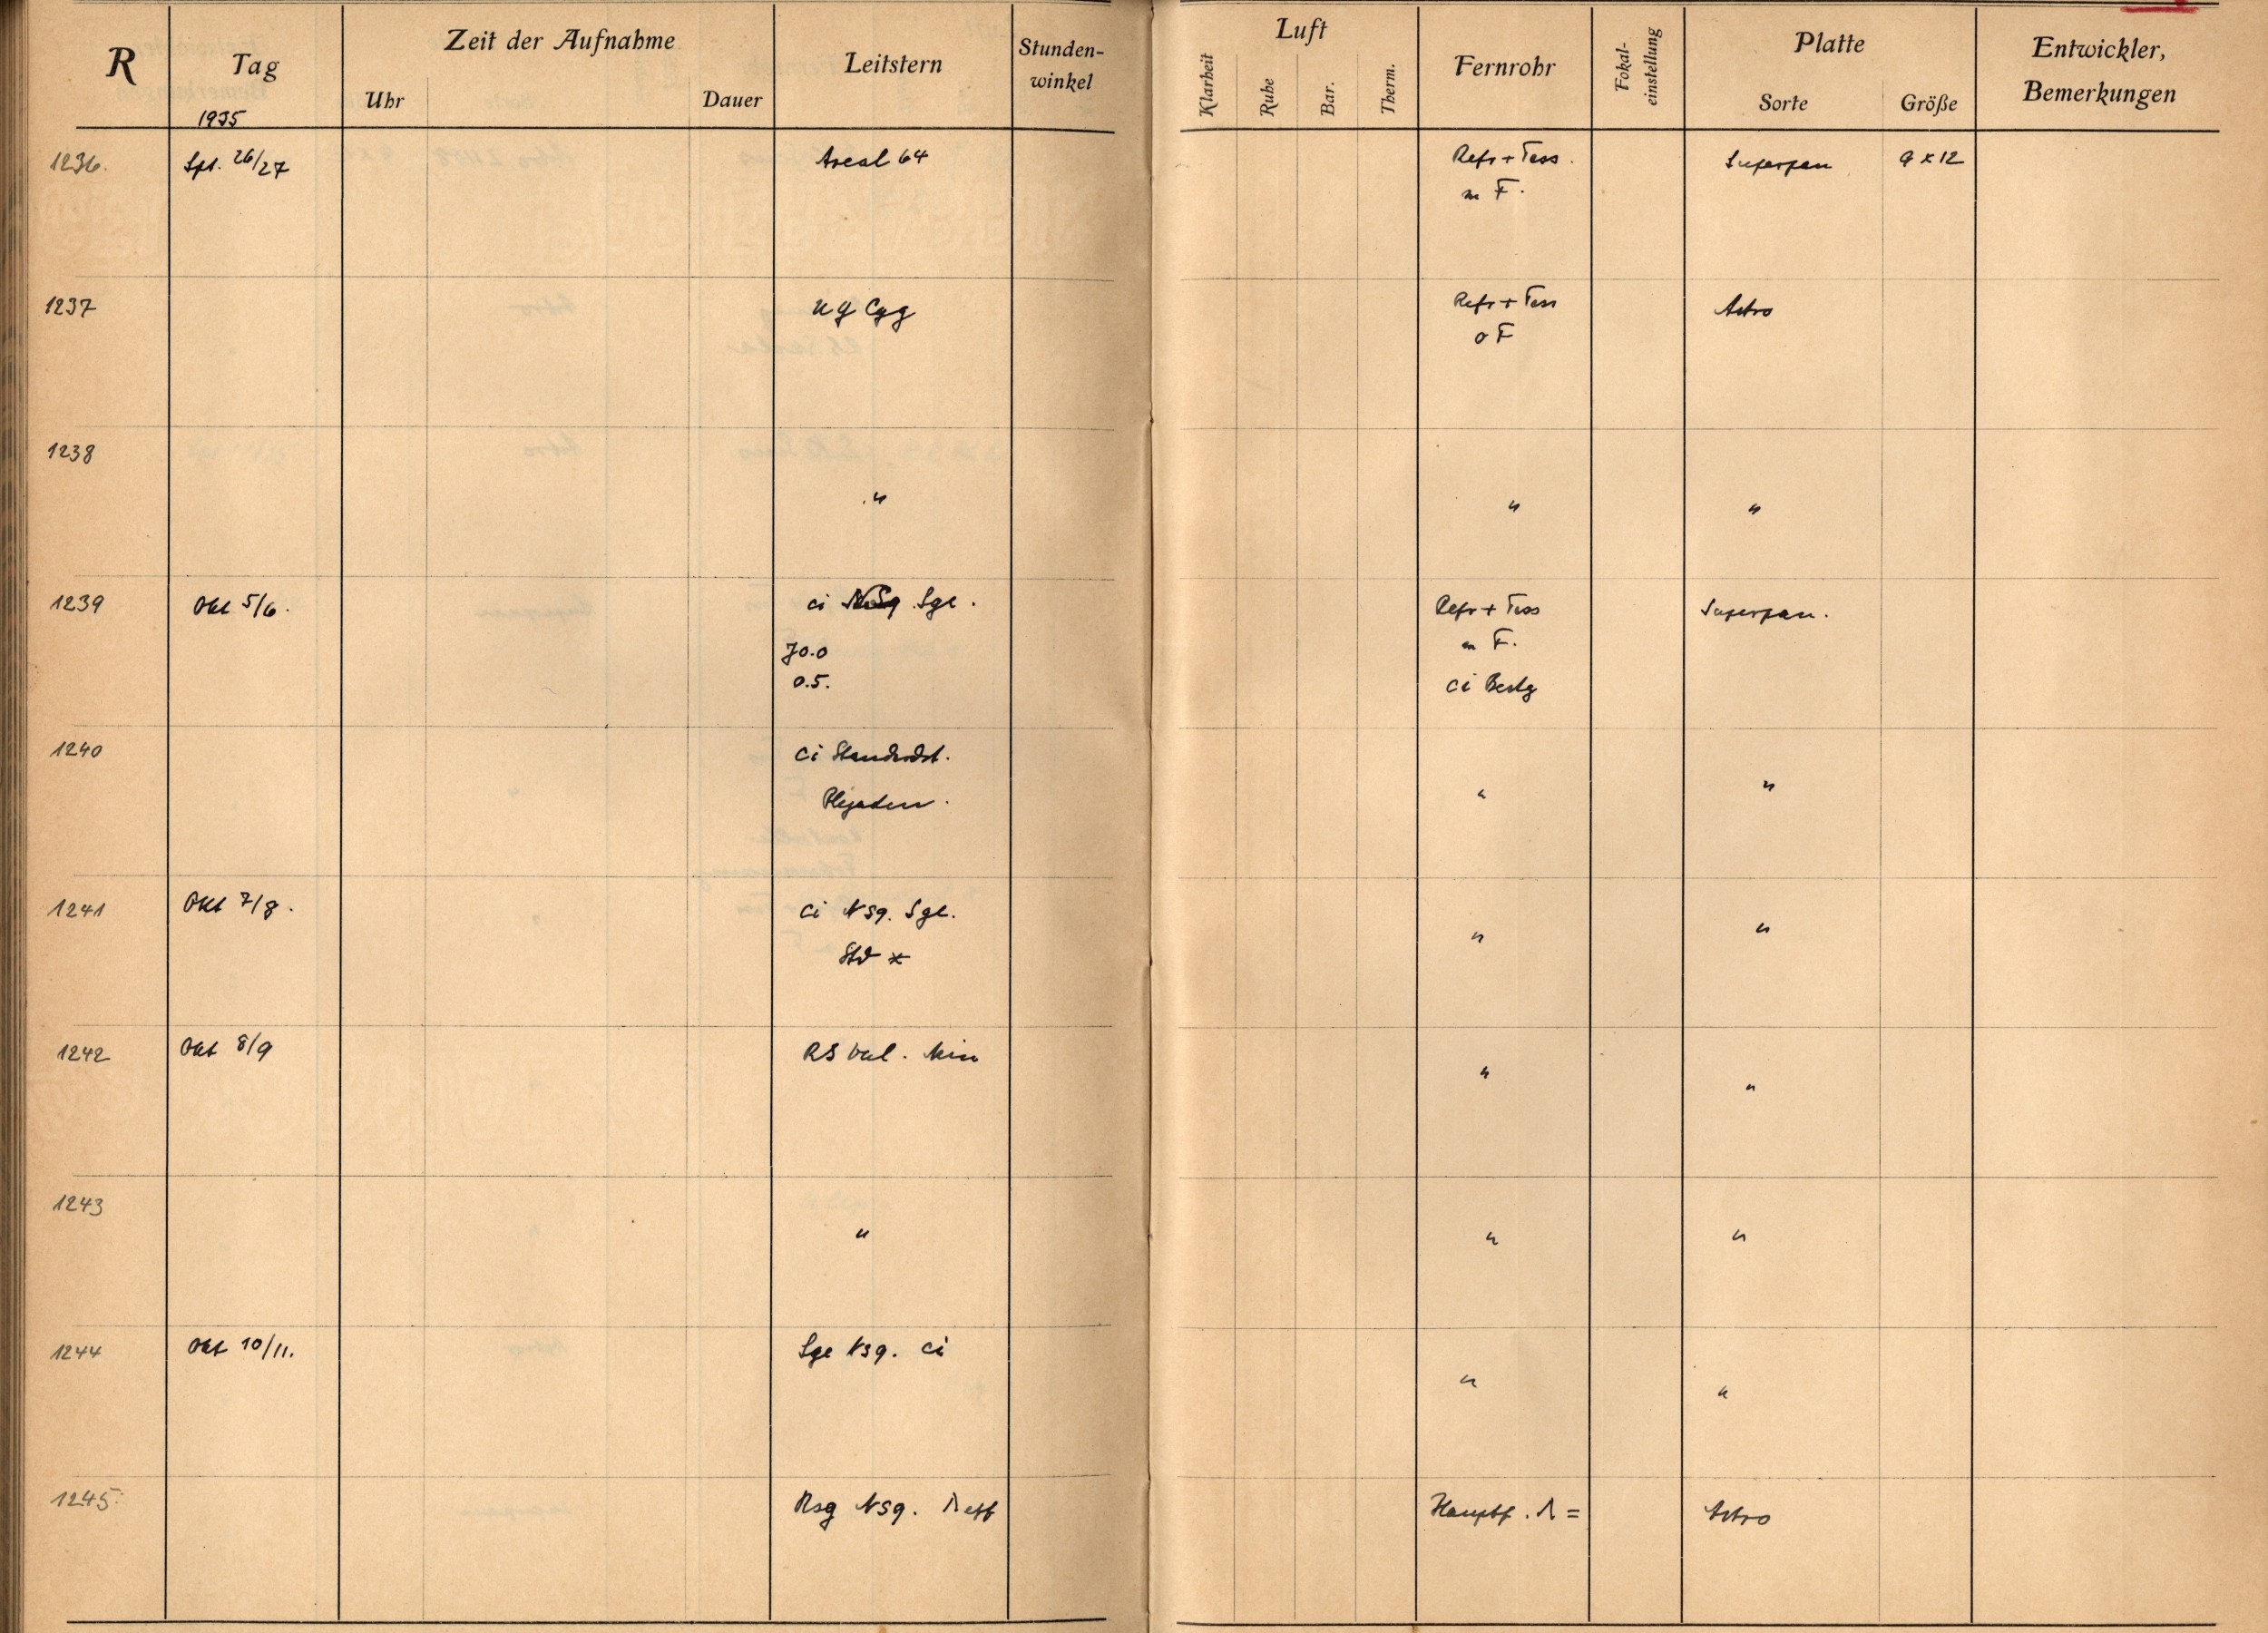 R
Tag
Zeit der Aufnahme
Uhr
Dauer
Leitstern
Stunden-
winkel
Luft
Klarheit
Ruhe
Bar.
Therm.
Fernrohr
Fokal-
einstellung
Platte
Sorte
Größe
Entwickler,
Bemerkungen
1935
1236. Spt. 26/27 Areal 64 Refr + Tess. Superpan 9 x 12
m F.
1237 Cyg Refr + Tess Astro
o F
1238
" " "
1239 Okt 5/6. ci Sge. Refr + Tess Superpan.
70.0 m F.
0.5. ci Bestg
1240 ci
Plejaden. " "
1241 Okt 7/8. ci NSq. Sge. " "
Std *
1242 Okt 8/9 RS Vul. Min " "
1243
" " "
1244 Okt 10/11. Sge NSq. ci " "
1245 NSq. λ eff Hauptf. λ = Astro